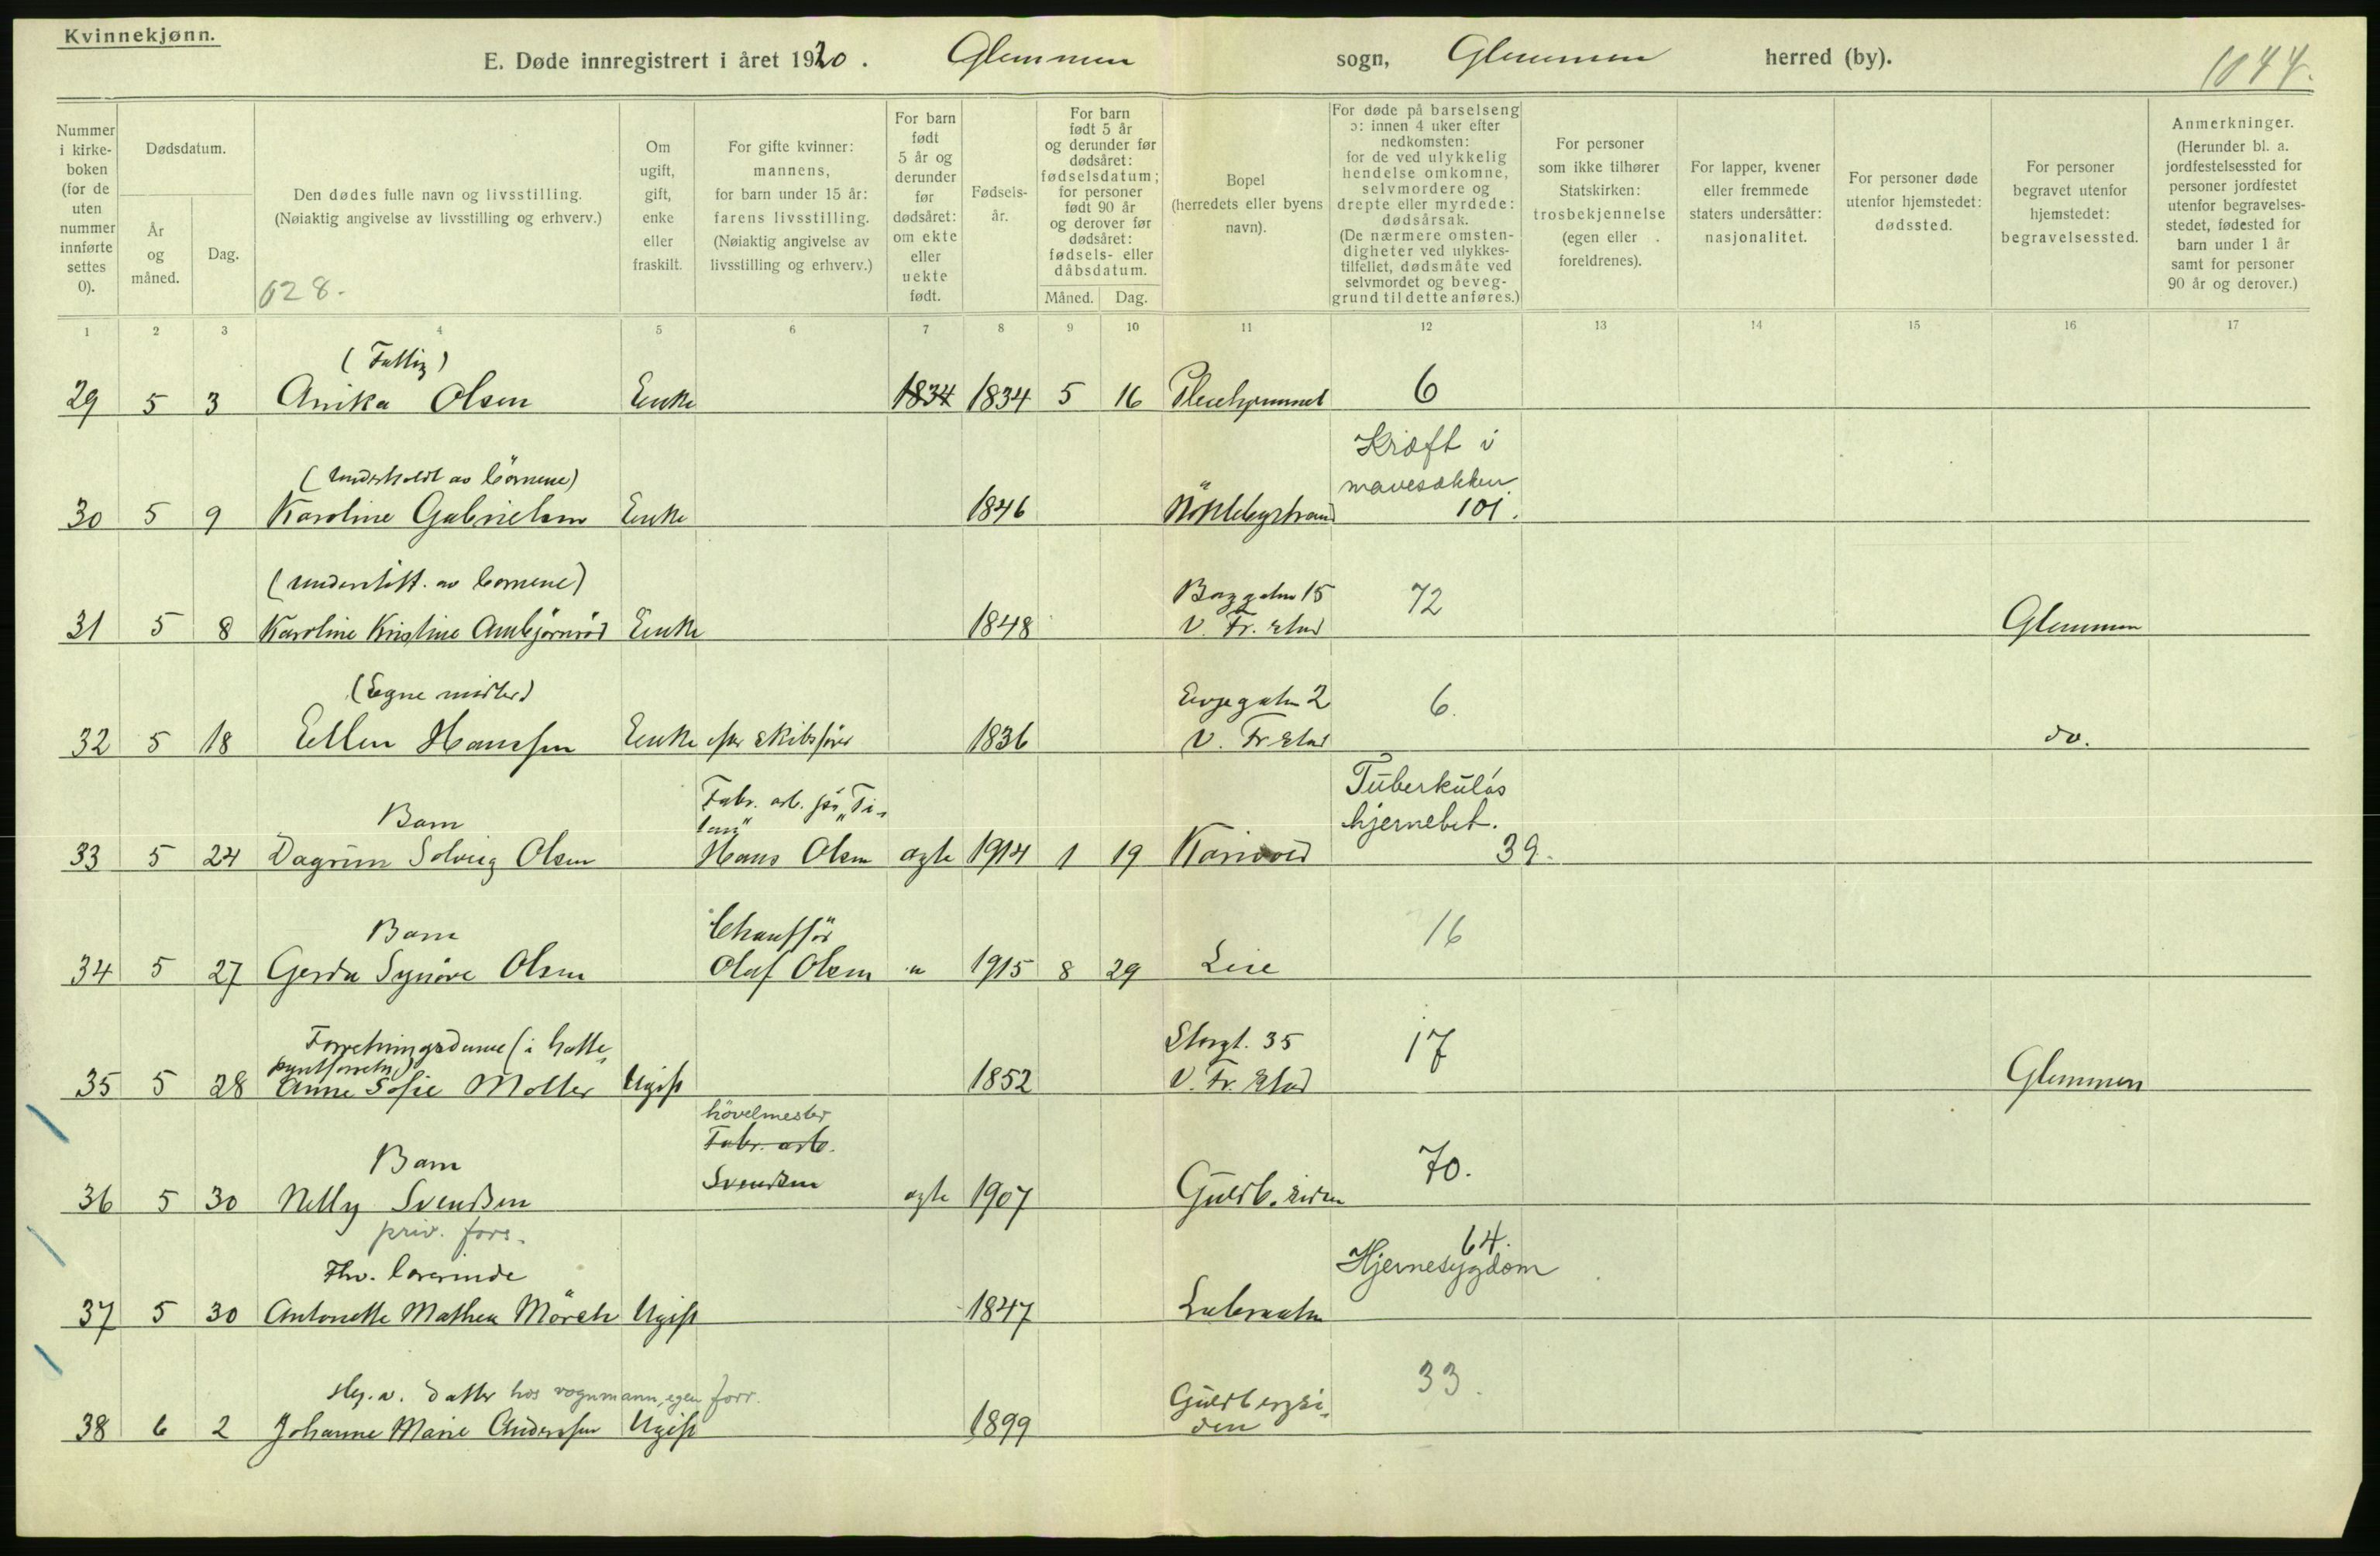 Kvinnekjønn.
E. Døde innregistrert i året 1920. Glemmen sogn, Glemmen herred (by). 1044.
Nummer i kirke-boken (for de uten nummer innførte settes 0).
Dødsdatum.
År og måned.
Dag.
Den dødes fulle navn og livsstilling.
(Nøiaktig angivelse av livsstilling og erhverv.)
628.
Om ugift, gift, enke eller fraskilt.
For gifte kvinner: mannens, for barn under 15 år: farens livsstilling. (Nøiaktig angivelse av livsstilling og erhverv.)
For barn født 5 år og derunder før dødsåret: om ekte eller uekte født.
Fødsels-år.
For barn født 5 år og derunder før dødsåret: fødselsdatum; for personer født 90 år og derover før dødsåret: fødsels- eller dåbsdatum.
Måned. Dag.
Bopel (herredets eller byens navn).
For døde på barselseng ɔ: innen 4 uker efter nedkomsten: for de ved ulykkelig hendelse omkomne, selvmordere og drepte eller myrdede: dødsårsak. (De nærmere omsten-digheter ved ulykkes-tilfellet, dødsmåte ved selvmordet og beveg-grund til dette anføres.)
For personer som ikke tilhører Statskirken: trosbekjennelse (egen eller foreldrenes).
For lapper, kvener eller fremmede staters undersåtter: nasjonalitet.
For personer døde utenfor hjemstedet: dødssted.
For personer begravet utenfor hjemstedet: begravelsessted.
Anmerkninger. (Herunder bl. a. jordfestelsessted for personer jordfestet utenfor begravelses-stedet, fødested for barn under 1 år samt for personer 90 år og derover.)
1 2 3 4 5 6 7 8 9 10 11 12 13 14 15 16 17
(Fattig)
29 5 3 Anika Olsen Enke 1834 1834 5 16 Pleiehjemmet 6
(Underholdt av börnene) Kræft i
mavesækken
30 5 9 Karoline Gabrielsen Enke 1846 101.
(understött. av börnene) Borggaten 15 72
31 5 8 Karoline Kristine Ambjörnröd Enke 1848 V. Fr.stad Glemmen
(Egne midler) 2 6.
32 5 18 Ellen Hanssen Enke efter skibsfører 1836 V. Fr.stad do.
Barn Fabr. arb. på „Ti-tan" Tuberkuløs
hjernebet.
33 5 24 Dagrun Solveig Olsen Hans Olsen ægte 1914 1 19 39.
Barn Chauffør 16
34 5 27 Gerda Synöve Olsen Olaf Olsen " 1915 8 29 Lie
Forretningsdame (i hatte- Storgt. 35 17
pyntforretn.)
35 5 28 Anne Sofie Moller Ugift 1852 V. Fr.stad Glemmen
hövelmester
Fabr. arb.
Barn Svendsen 70.
36 5 30 Nelly Svendsen ægte 1907 Guldb.siden
priv. fors. 64.
Fhv. lærerinde Hjernesygdom
37 5 30 Antonette Mathea Mörch Ugift 1847
datter hos vognmann, egen forr. 33.
Guldbergsi-
38 6 2 Johanne Marie Anderssen Ugift 1899 den